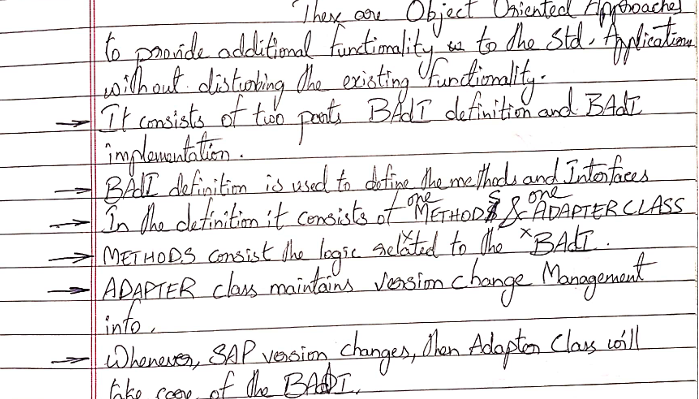 They are Object Oriented Approaches
to provide additional functionality to the Std. Application
without disturbing the existing functionality.
→ It consists of two parts BAdI definition and BAdI
implementation.
→ BAdI definition is used to define the methods and Interfaces
→ In the definition it consists of one METHODS & one ADAPTER CLASS
→ METHODS consist the logic related to the BAdI.
→ ADAPTER class maintains version change Management
info.
→ Whenever, SAP version changes, then Adapter Class will
take care of the BAdI.